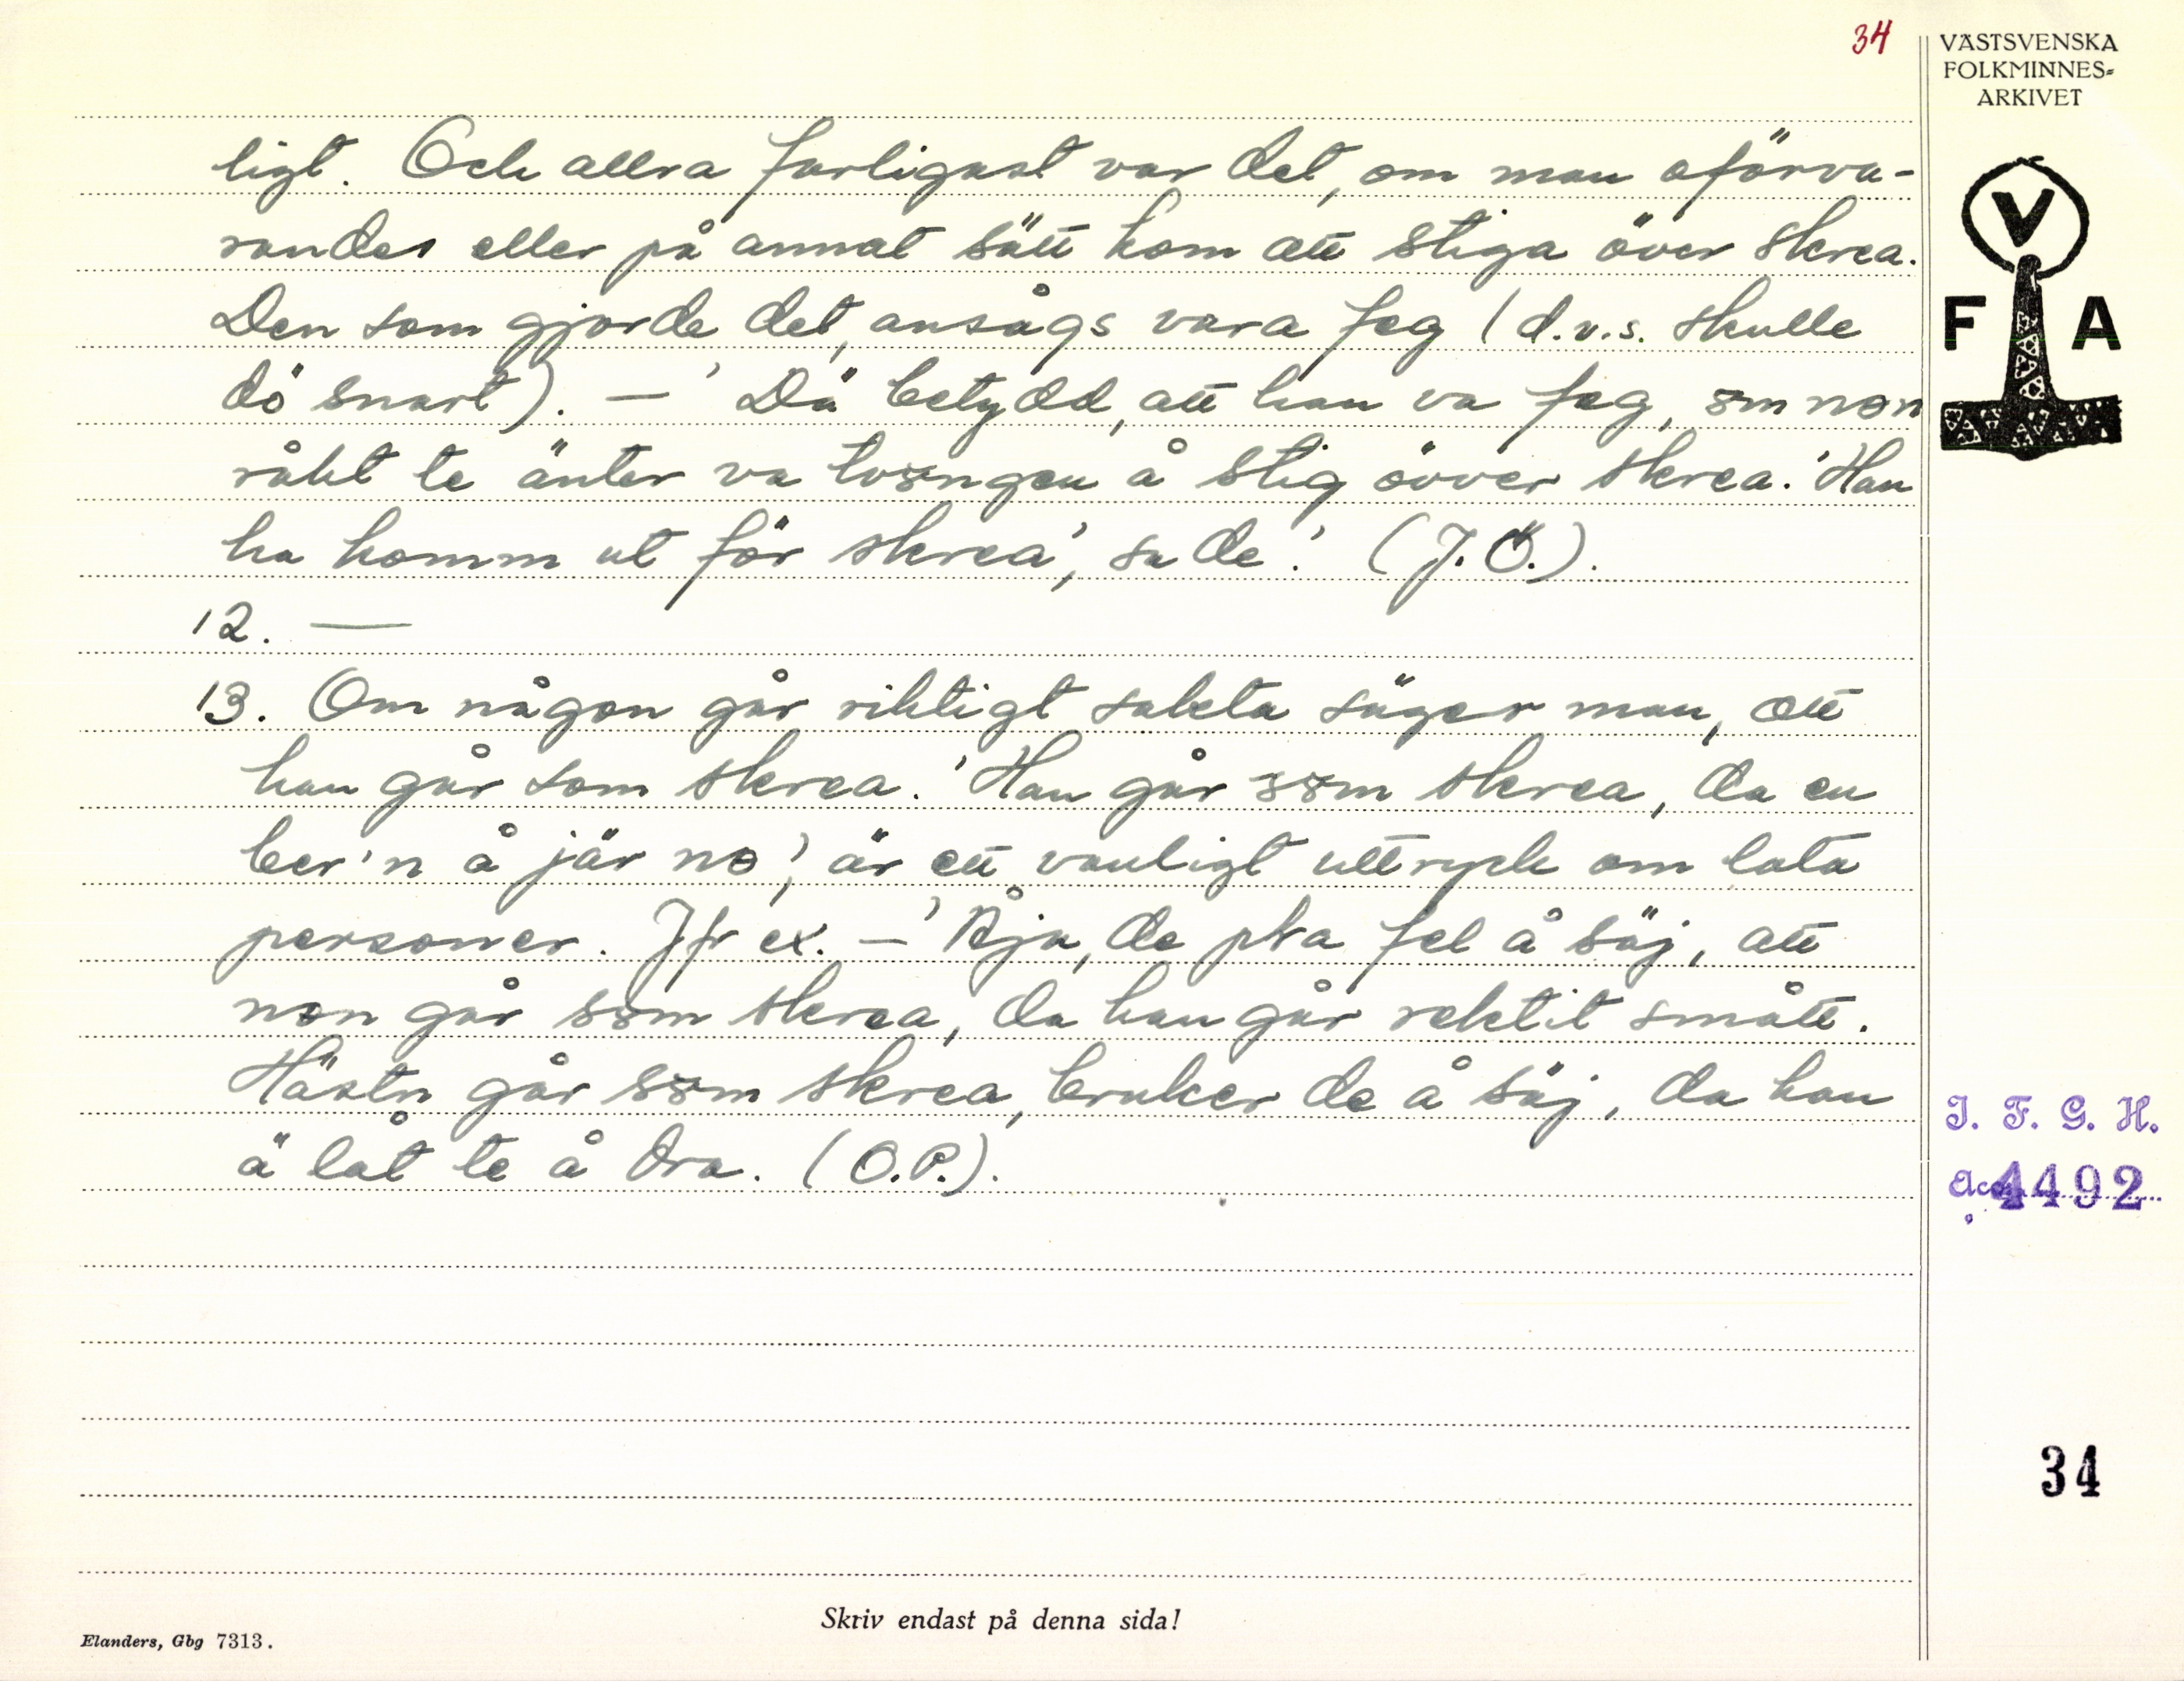 34
VÄSTSVENSKA
FOLKMINNES=
ARKIVET
V
F A
ligt. Och allra farligast var det, om man oförva-
randes eller på annat sätt kom att stiga över skrea.
Den som gjorde det, ansågs vara feg (d.v.s. skulle
dö snart). — 'Dä betydd, att han va feg, öm nɵn
råkt te änter va tvöngen å stig övver skrea. 'Han
ha komm ut för skrea', sa de.' (J.Ö.).
12. —
13. Om någon går riktigt sakta säger man, att
han går som skrea. 'Han går söm skrea, da en
ber'n å jär nɵ', är ett vanligt uttryck om lata
personer. Jfr ex. — 'Åja, de pla fel å säj, att
nɵn går söm skrea, da han går rektit smått.
Hästn går söm skrea, bruker de å säj, da han
ä låt te å dra. (O.P.).
I. F. G. H.
Acc. 4492
34
Skriv endast på denna sida!
Elanders, Gbg 7313.